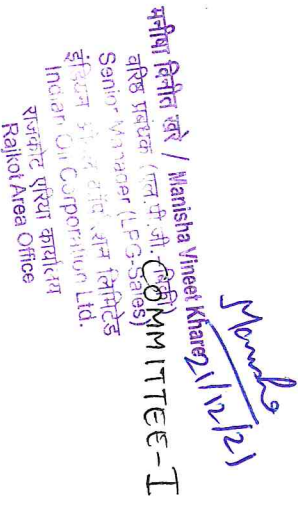 Manisha
21/12/21
COMMITTEE-I
मनीषा विनीत खरे / Manisha Vineet Khare
वरिष्ठ प्रबंधक (एल.पी.जी.
Senior Manager (LPG-Sales)
इंडियन ऑयल कॉर्पोरेशन लिमिटेड
Indian Oil Corporation Ltd.
राजकोट एरिया कार्यालय
Rajkot Area Office